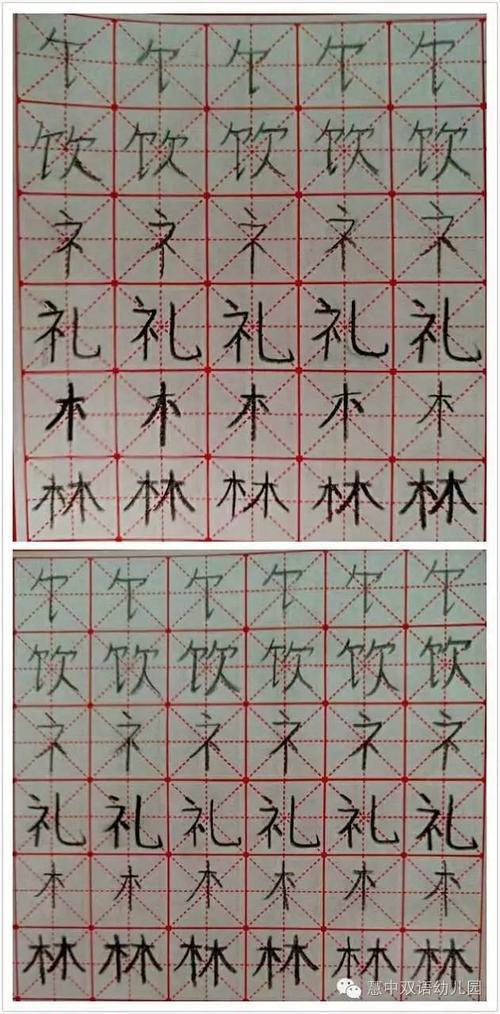 饣 饣 饣 饣 饣
饮 饮 饮 饮 饮
礻 礻 礻 礻 礻
礼 礼 礼 礼 礼
木 木 木 木 木
林 林 林 林 林
饣 饣 饣 饣 饣 饣
饮 饮 饮 饮 饮 饮
礻 礻 礻 礻 礻 礻
礼 礼 礼 礼 礼 礼
木 木 木 木 木 木
林 林 林 林 林 林
慧中双语幼儿园